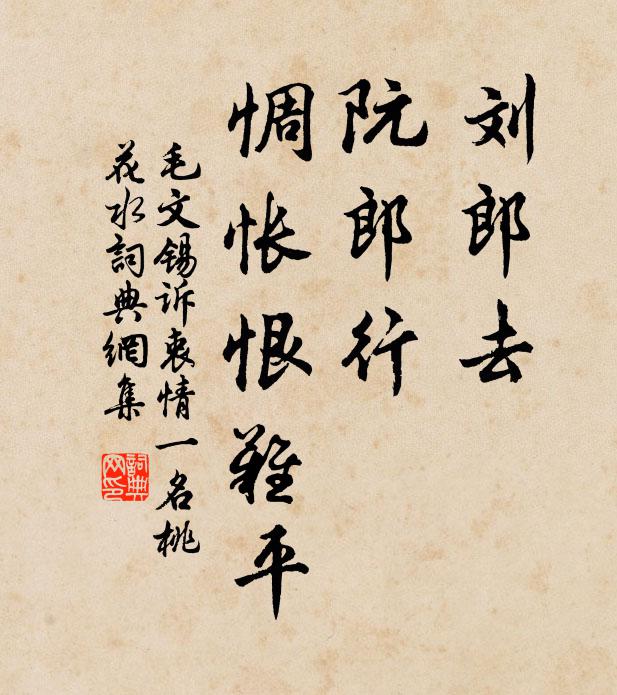 刘郎去
阮郎行
惆怅恨难平
毛文锡诉衷情一名桃
花水詞典網集
詞典
网印